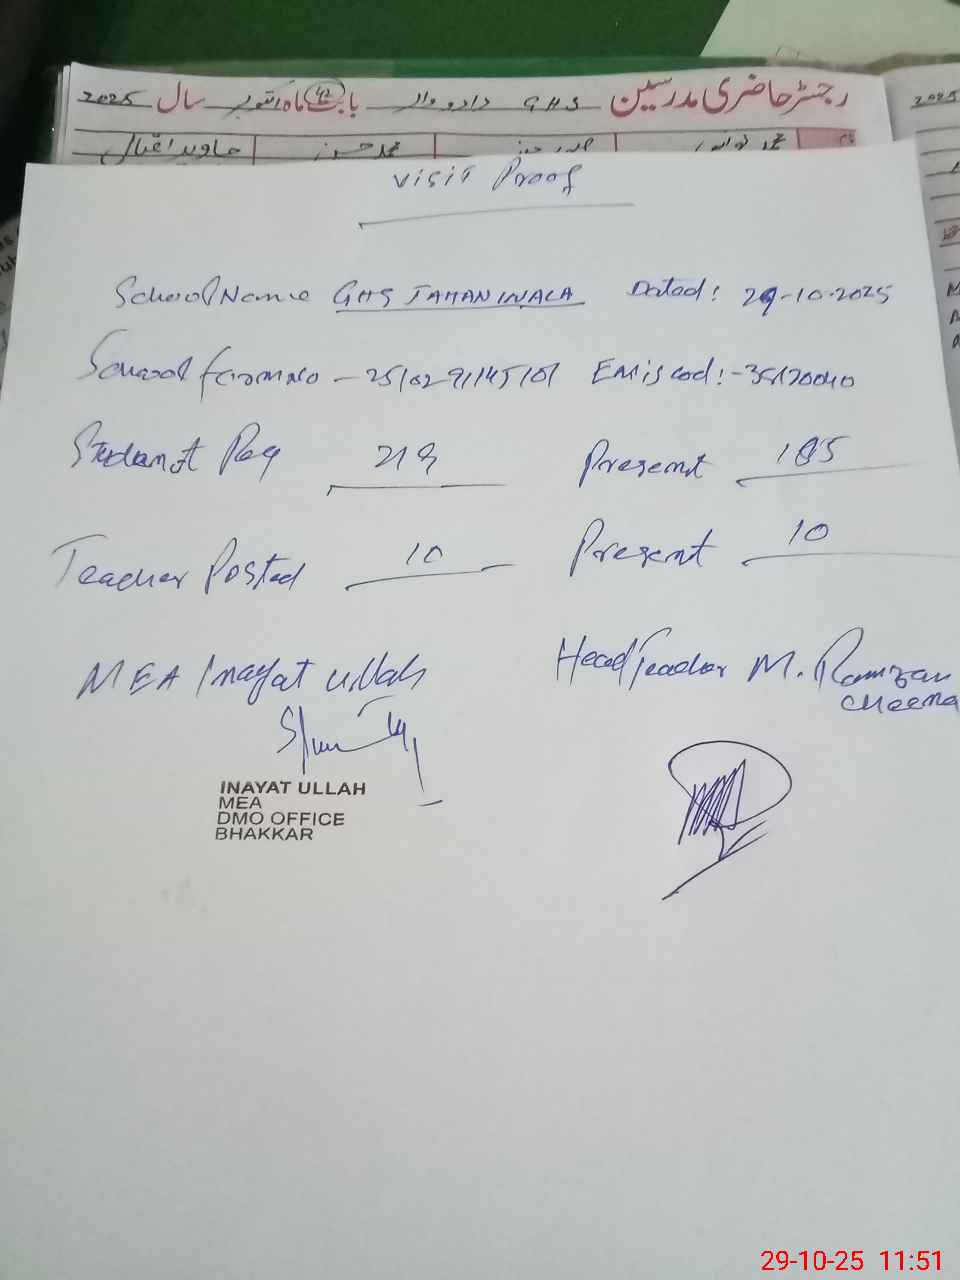 رجسٹر حاضری مدرسین GHS دادو والہ بابت ماہ اکتوبر سال 2025
2025
محمد نواز
محمد حسن
جاوید اقبال
Visit Proof
School Name GHS JAHANIWALA Dated: 29-10-2025
School form no - 2510291145101 Emis cod:- 35120040
Studant Reg 219 Present 185
Teacher Posted 10 Present 10
MEA Inayat ullah Head Teacher M. Ramzan
cheema
INAYAT ULLAH
MEA
DMO OFFICE
BHAKKAR
29-10-25 11:51